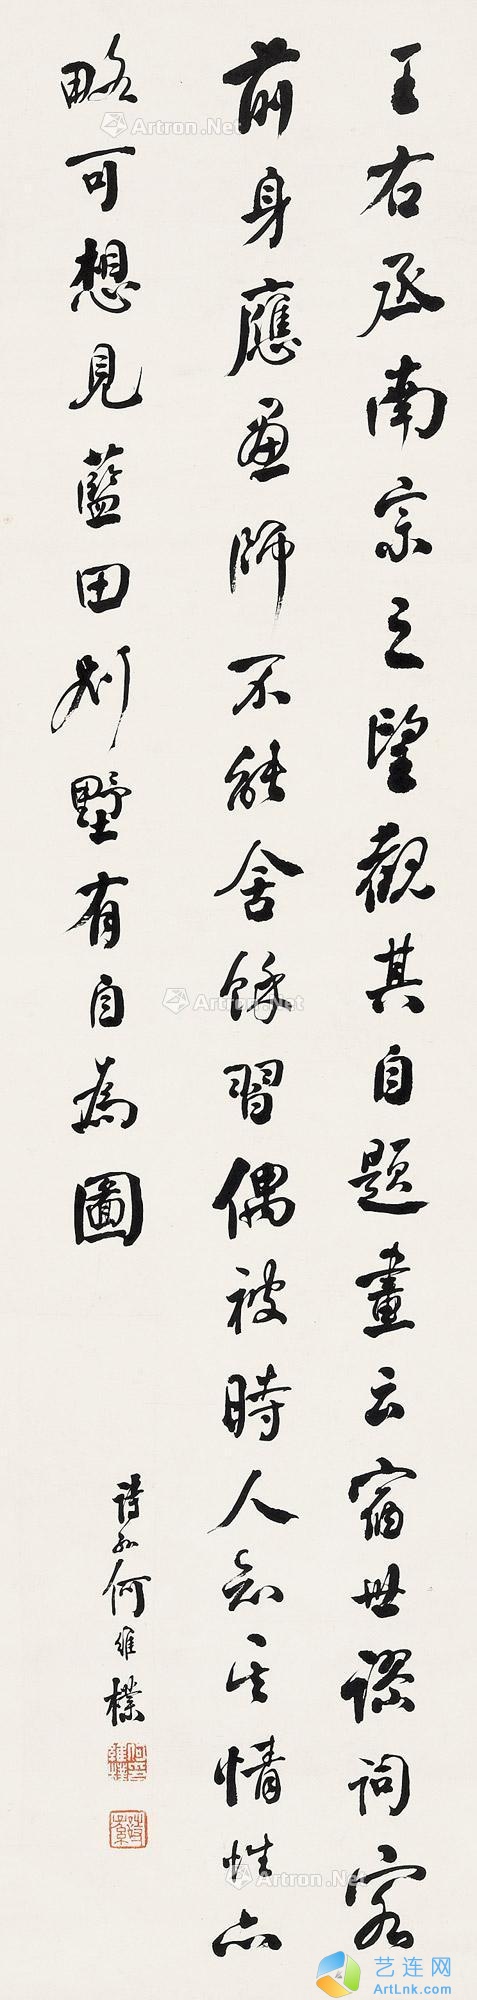 王右丞南宗之望觀其自題畫云宿世謬詞客
前身應畫師不能舍餘習偶被時人知其情性亦
略可想見藍田別墅有自為圖
詩孫何維樸
Artron.Net
Artron.Net
Artron.Net
Artron.Net
Artron.Net
Artron.Net
艺连网
ArtLnk.com